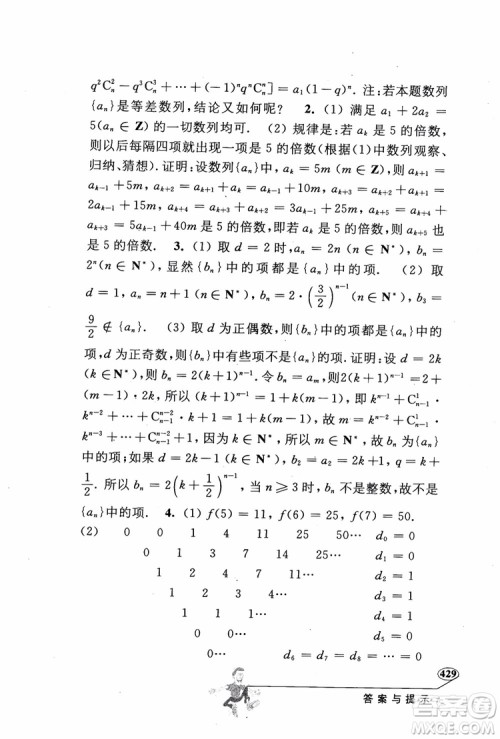 q²C²ₙ − q³C³ₙ + ⋯ + (−1)ⁿqⁿCⁿₙ] = a₁(1 − q)ⁿ. 注：若本题数列
{aₙ}是等差数列，结论又如何呢？ 2. (1) 满足 a₁ + 2a₂ =
5(aₙ ∈ Z)的一切数列均可. (2) 规律是：若 aₖ 是 5 的倍数，
则以后每隔四项出现一项是 5 的倍数(根据(1)中数列观察、
归纳、猜想). 证明：设数列{aₙ}中，aₖ = 5m(m ∈ Z)，则 aₖ₊₁ =
aₖ₋₁ + 5m，aₖ₊₂ = aₖ₋₁ + 10m，aₖ₊₃ = 2aₖ₋₁ + 15m，aₖ₊₄ =
3aₖ₋₁ + 25m，aₖ₊₅ = 5aₖ₋₁ + 40m 是 5 的倍数，所以 aₖ₊₅ 也
是 5 的倍数. 3. (1) 取 d = 2 时，aₙ = 2n (n ∈ N*)，bₙ =
2ⁿ (n ∈ N*)，显然{bₙ}中的项都是{aₙ}中的项. (2) 取
d = 1，aₙ = n + 1(n ∈ N*)，bₙ = 2·(3/2)ⁿ⁻¹ (n ∈ N*)，b₃ =
9/2 ∉ {aₙ}. (3) 取 d 为正偶数，{bₙ}中的项都是{aₙ}中的
项，d 为正奇数，{bₙ}中有些项不是{aₙ}中的项. 证明：设 d = 2k
(k ∈ N*)，bₙ = aₘ，则 2(1 + k)ⁿ⁻¹ = 2 + (m −
1)·2k，所以(1 + k)ⁿ⁻¹ = 1 + k(m − 1)，所以 m = kⁿ⁻² + C¹ₙ₋₁
kⁿ⁻³ + ⋯ + Cⁿ⁻²ₙ₋₁ + 1 ∈ N*. 所以{bₙ}中的项都是{aₙ}
中的项；如果 d = 2k + 1(k ∈ N)，b₂ = a₂ = 2k + 3，q = k +
1/2. 所以 bₙ = 2(k + 3/2)ⁿ⁻¹，当 n ⩾ 3 时，bₙ 不是整数，故不是
{aₙ}中的项. 4. (1) f(5) = 11，f(6) = 17，f(7) = 50.
(2) 0 0 1 4 11 25⋯ d₀ = 0
0 1 3 7 14⋯ d₁ = 0
1 2 4 7⋯ d₂ = 1
1 2 3⋯ d₃ = 1
1 1⋯ d₄ = 1
0⋯ d₅ = 0
d₆ = d₇ = d₈ = ⋯ = 0
429
答案与提示